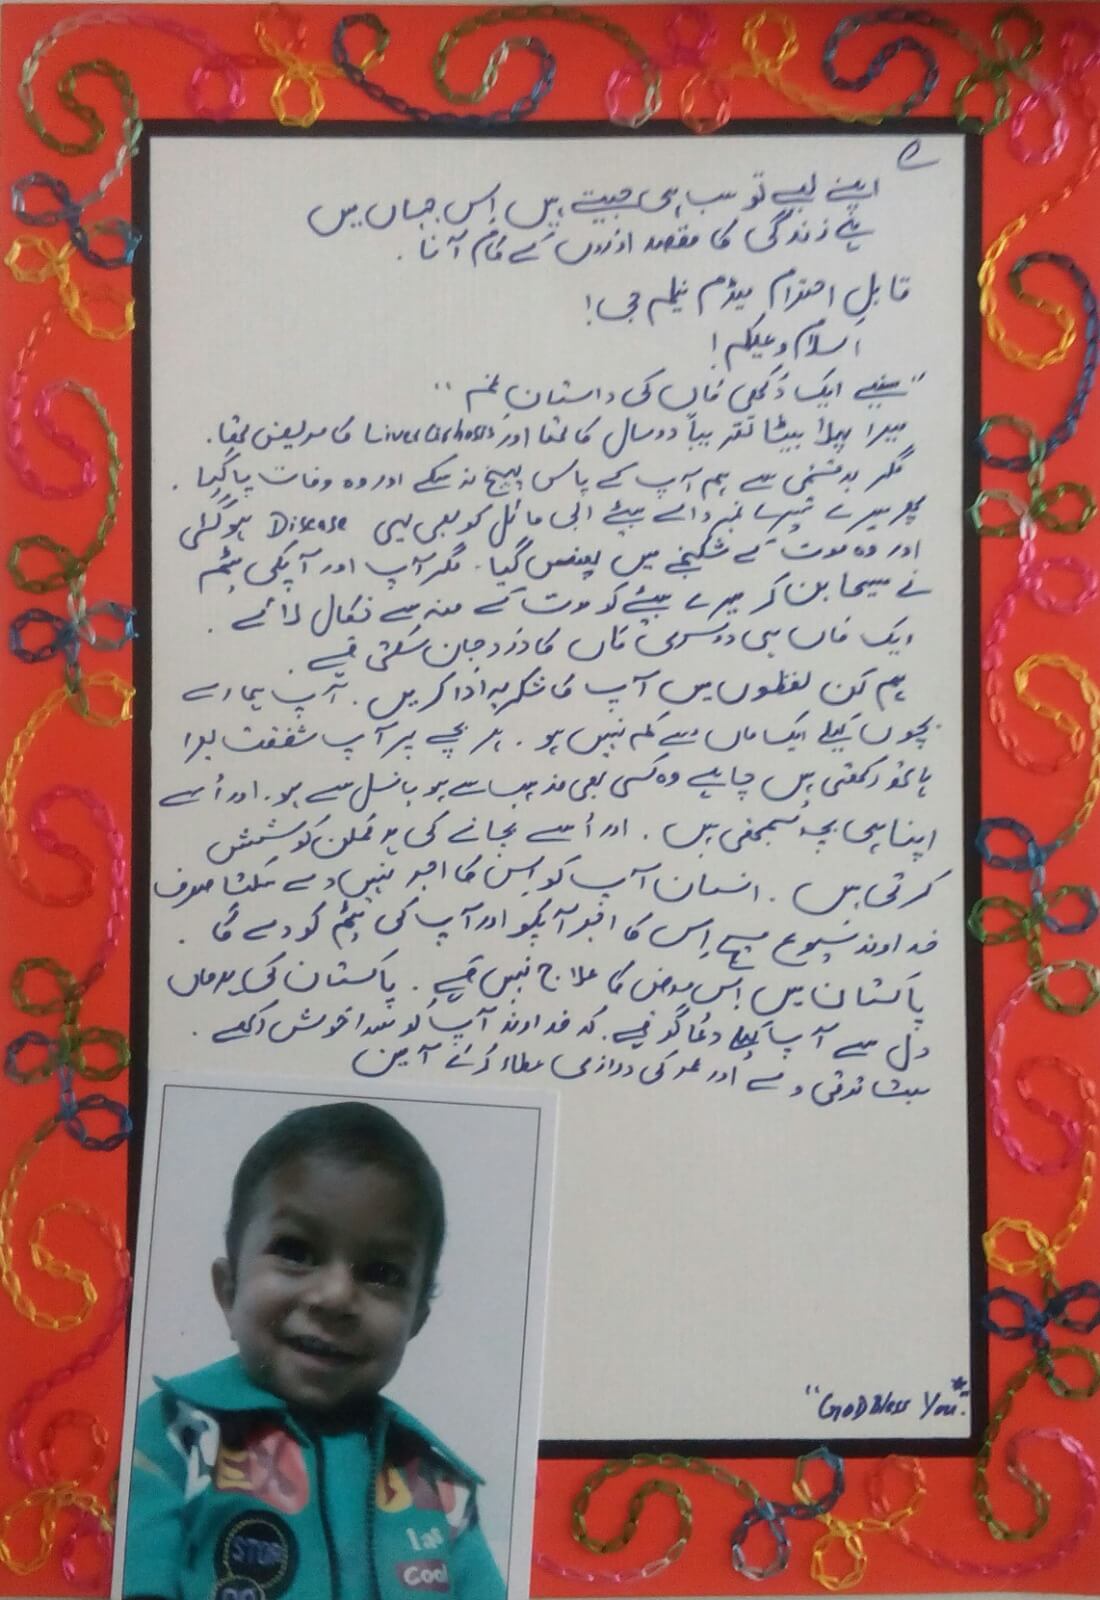 اپنے لیے تو سب ہی جیتے ہیں اِس جہاں میں
ہے زندگی کا مقصد اوروں کے کام آنا۔
قابلِ احترام میڈم نیلم جی!
اَسلام و علیکم!
"سنیے ایک دُکھی ماں کی داستانِ غم"
میرا پہلا بیٹا تقریباً دو سال کا تھا اور Liver Cirhosis کا مریض تھا۔
مگر بدقسمتی سے ہم آپ کے پاس پہنچ نہ سکے اور وہ وفات پا گیا۔
پھر میرے تیسرے نمبر والے بیٹے ابی مائل کو بھی یہی Disease ہوگئی
اور وہ موت کے شکنجے میں پھنس گیا۔ مگر آپ اور آپکی ٹیم
نے مسیحا بن کر میرے بیٹے کو موت کے منہ سے نکال لائے۔
ایک ماں ہی دوسری ماں کا درد جان سکتی ہے۔
ہم کن لفظوں میں آپ کا شکریہ ادا کریں۔ آپ ہمارے
بچوں کیلئے ایک ماں سے کم نہیں ہو۔ ہر بچے پر آپ شفقت بھرا
ہاتھ رکھتی ہیں چاہیے وہ کسی بھی مذہب سے ہو یا نسل سے ہو۔ اور اُسے
اپنا ہی بچہ سمجھتی ہیں۔ اور اُسے بچانے کی ہر ممکن کوشش
کرتی ہیں۔ انسان آپ کو اِس کا اجر نہیں دے سکتا صرف
خداوند یسوع مسیح اِس کا اجر آپکو اور آپ کی ٹیم کو دے گا۔
پاکستان میں اِس مرض کا علاج نہیں ہے۔ پاکستان کی ہر ماں
دل سے آپ کیلئے دُعا گو ہے۔ کہ خداوند آپ کو سدا خوش رکھے۔
ترقی دے اور عمر کی درازی عطاء کرئے آمین
"GOD Bless You"
STOP
Iam
Cool